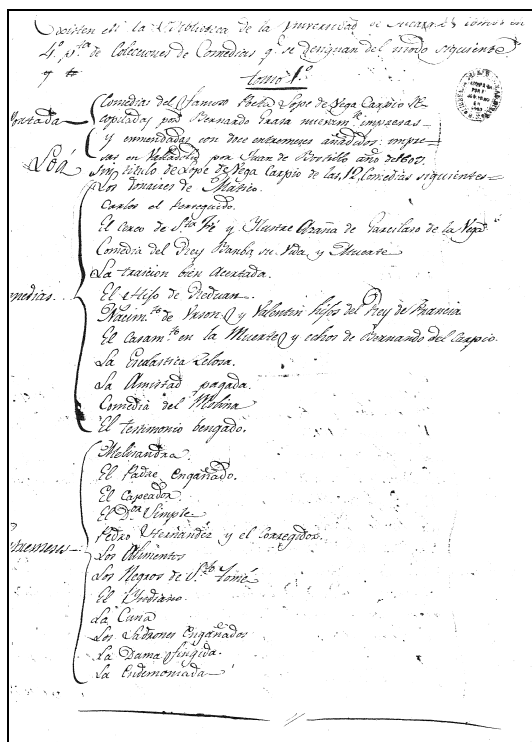 Existen en la Biblioteca de la Universidad de tomos en
4º pta de Colecciones de Comedias q. se designan del modo siguiente
y to
tomo 1º
Portada
Comedias del famoso Poeta Lope de Vega Carpio Re-
copiladas por Bernardo Grasa nuevamte impresas
y enmendadas con doce entremeses añadidos: impre-
sas en Valladolid por Juan de Bostillo año de 1609.
Loa
Sin título de Lope de Vega Carpio de las 12 Comedias siguientes=
Comedias
Los donaires de Matico.
Carlos el Perseguido.
El Cerco de Sta Fé y Ilustre Azaña de Garcilaso de la Vega
Comedia del Rey Bamba, su Vida, y Muerte
La traicion bien Acertada.
El Hijo de Reduan.
Nacimto de Urson, y Valentin hijos del Rey de Francia
El Casamto en la Muerte, y echos de Bernardo del Carpio.
La Escolastica Zelosa.
La Amistad pagada.
Comedia del Molino
El testimonio bengado.
Entremeses
Melisandra.
El Padre Engañado.
El Capeador.
El Dor Simple.
Pedro Hernandez y el Corregidor.
Los Alimentos
Los Negros de Sto Tomé
El Yndiano.
La Cuna
Los Ladrones Engañados
La Dama fingida.
La Endemoniada